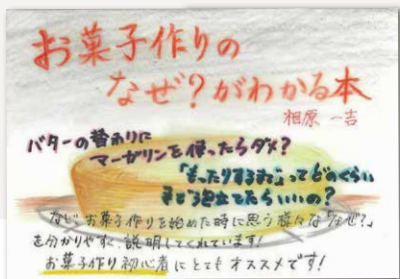 お菓子作りの
なぜ?がわかる本
相原 一吉
バターの替わりに
マーガリンを使ったらダメ?
「もったりするまで」ってどのくらい
まで泡立てたらいいの?
など お菓子作りを始めた時に思う様々な「なぜ?」
を分かりやすく説明してくれています!
お菓子作り初心者にとてもオススメです!